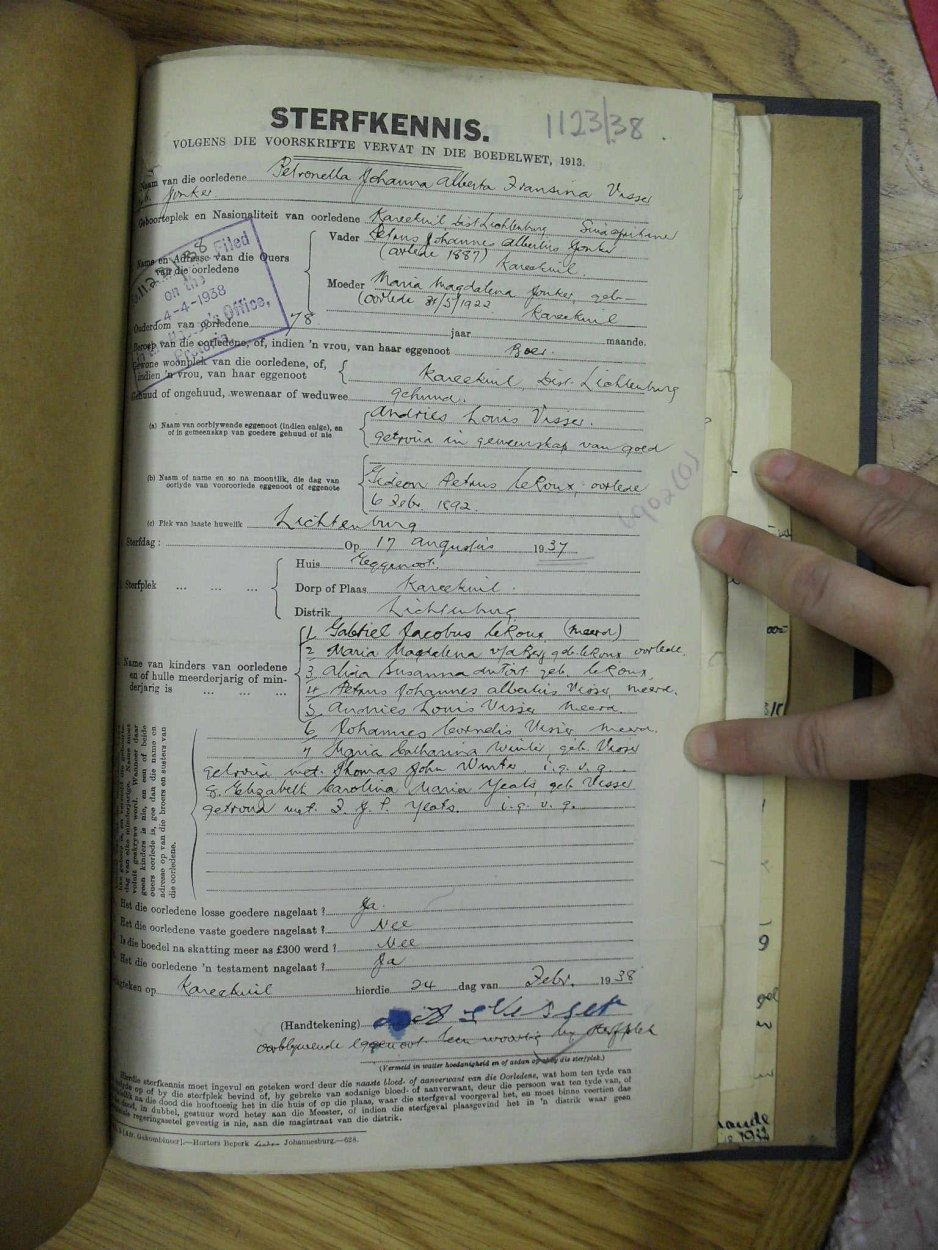 STERFKENNIS.
1123/38
VOLGENS DIE VOORSKRIFTE VERVAT IN DIE BOEDELWET, 1913.
Naam van die oorledene Petronella Johanna Alberta Fransina Visser
Jonker
Geboorteplek en Nasionaliteit van oorledene Kareekuil Dist. Lichtenburg Suidafrikane
Name en Adresse van die Ouers van die oorledene
Vader Petrus Johannes Albertus Jonker
(oorlede 1887) Kareekuil.
Moeder Maria Magdalena Jonker, geb—
(oorlede 31/5/1922 Kareekuil
Filed
on the
4-4-1938
Master's Office,
Pretoria
Ouderdom van oorledene 78 jaar maande.
Beroep van die oorledene, of, indien 'n vrou, van haar eggenoot Boer.
Gewone woonplek van die oorledene, of, indien 'n vrou, van haar eggenoot Kareekuil Dist. Lichtenburg
Gehuud of ongehuud, wewenaar of weduwee gehuud.
(a) Naam van oorblywende eggenoot (indien enige), en of in gemeenskap van goedere gehuud of nie
Andries Louis Visser.
getroud in gemeenskap van goed
(b) Naam of name en so na moontlik, die dag van oorlyde van vooroorlede eggenoot of eggenote
Gideon Petrus leRoux, oorlede
6 Febr. 1892.
6902(0)
(c) Plek van laaste huwelik Lichtenburg
Sterfdag: Op 17 Augustus 1937
Sterfplek
Huis Eggenoot.
Dorp of Plaas Kareekuil.
Distrik Lichtenburg
Name van kinders van oorledene en of hulle meerderjarig of minderjarig is
1. Gabriel Jacobus leRoux (meerd)
2 Maria Magdalena v/d geb. leRoux oorlede.
3. Alida Susanna duToit geb. leRoux,
4 Petrus Johannes Albertus Visser, meerd.
5. Andries Louis Visser meerd.
6 Johannes Cornelis Visser meerd.
7 Maria Catharina Winter geb. Visser
getroud met Thomas John Winter i.g.v.g.
8. Elizabeth Carolina Maria Yeats geb. Visser
getroud met J. J. P. Yeats. i.g.v.g.
Het die oorledene losse goedere nagelaat? Ja.
Het die oorledene vaste goedere nagelaat? Nee
Is die boedel na skatting meer as £300 werd? Nee
Het die oorledene 'n testament nagelaat? Ja
Kareekuil hierdie 24 dag van Febr. 1938
(Handtekening)
oorblywende eggenoot teenwoordig by sterfplek
(Vermeld in watter hoedanigheid en of aldan by die sterfplek.)
Hierdie sterfkennis moet ingevul en geteken word deur die naaste bloed- of aanverwant van die Oorledene, wat hom ten tyde van
op of by die sterfplek bevind of, by gebreke van sodanige bloed- of aanverwant, deur die persoon wat ten tyde van, of
na die dood die hooftoesig het in die huis of op die plaas, waar die sterfgeval voorgeval het, en moet binne veertien dae
dood, in dubbel, gestuur word hetsy aan die Meester, of indien die sterfgeval plaasgevind het in 'n distrik waar geen
regeringsetel gevestig is nie, aan die magistraat van die distrik.
Gekombineer].—Hortors Beperk Johannesburg.—628.